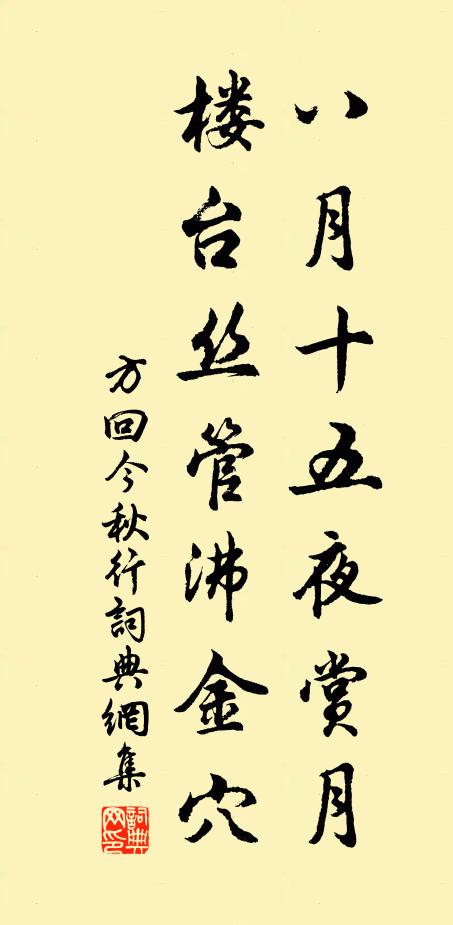 八月十五夜赏月
楼台丝管沸金穴
方回今秋行詞典網集
詞典网印